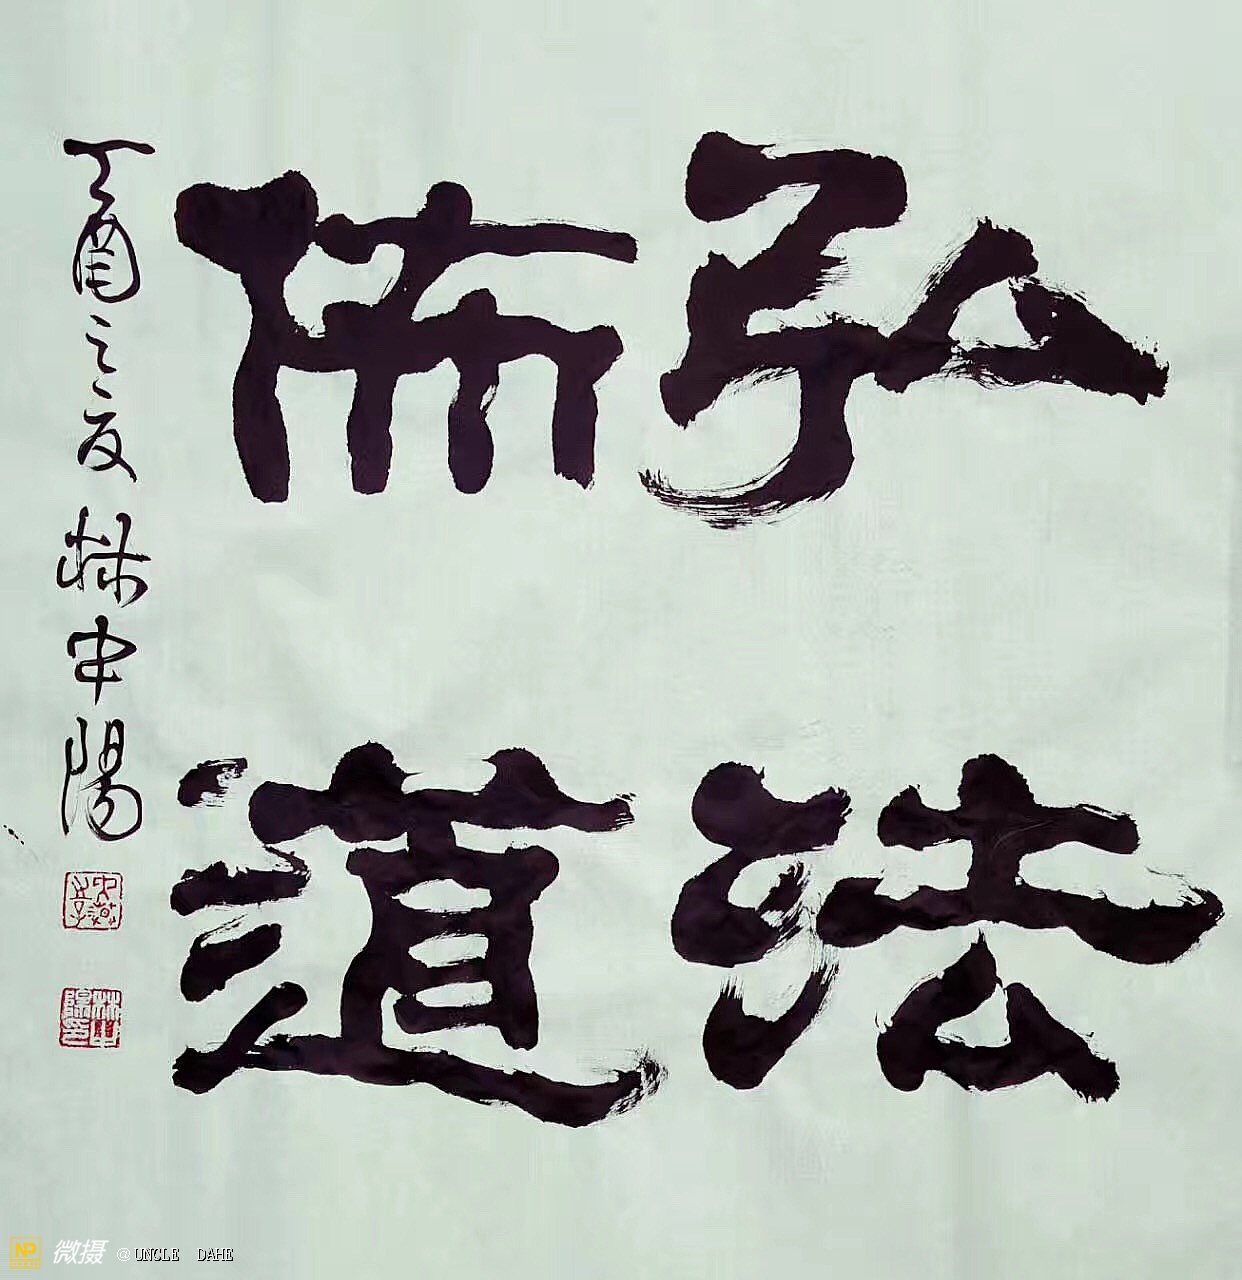 弘法
佈道
丁酉之夏 林中陽
林中陽印
NP 微摄 @UNCLE DAHE